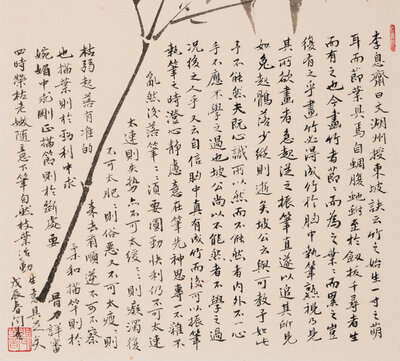 李息齋曰文湖州授東坡訣云竹之始生一寸之萌
耳而節葉具焉自蜩腹虵蚹至於劔拔十尋者生
而有之也今畫竹者節節而為之葉葉而累之豈
復有之乎畫竹必得成竹於胸中執筆熟視乃見
其所欲畫者急起從之振筆直遂以追其所見
如兔起鶻落少縱則逝矣坡公云與可教予如此
予不能然夫既心識所以然而不能然者內外不一心
手不應不學之過也坡公尚以不能然者不學之過
況後之人乎人自信胸中真有成竹而後可以振筆
執筆之時澄心靜慮意在筆先神思專一不雜不
亂然後落筆須要圓勁快利仍不可太
太速則失勢亦不可太緩則癡濁復
不可太肥則俗惡又不可太瘦則
枯弱起落有准的
來去有順逆不可不察
也描葉則於勁利中求
柔和描竿則於
婉媚中求剛正描節則於斷處要
骨力詳審
四時榮枯老嫩隨意下筆自然枝葉活動
生意具足矣
戊辰春月